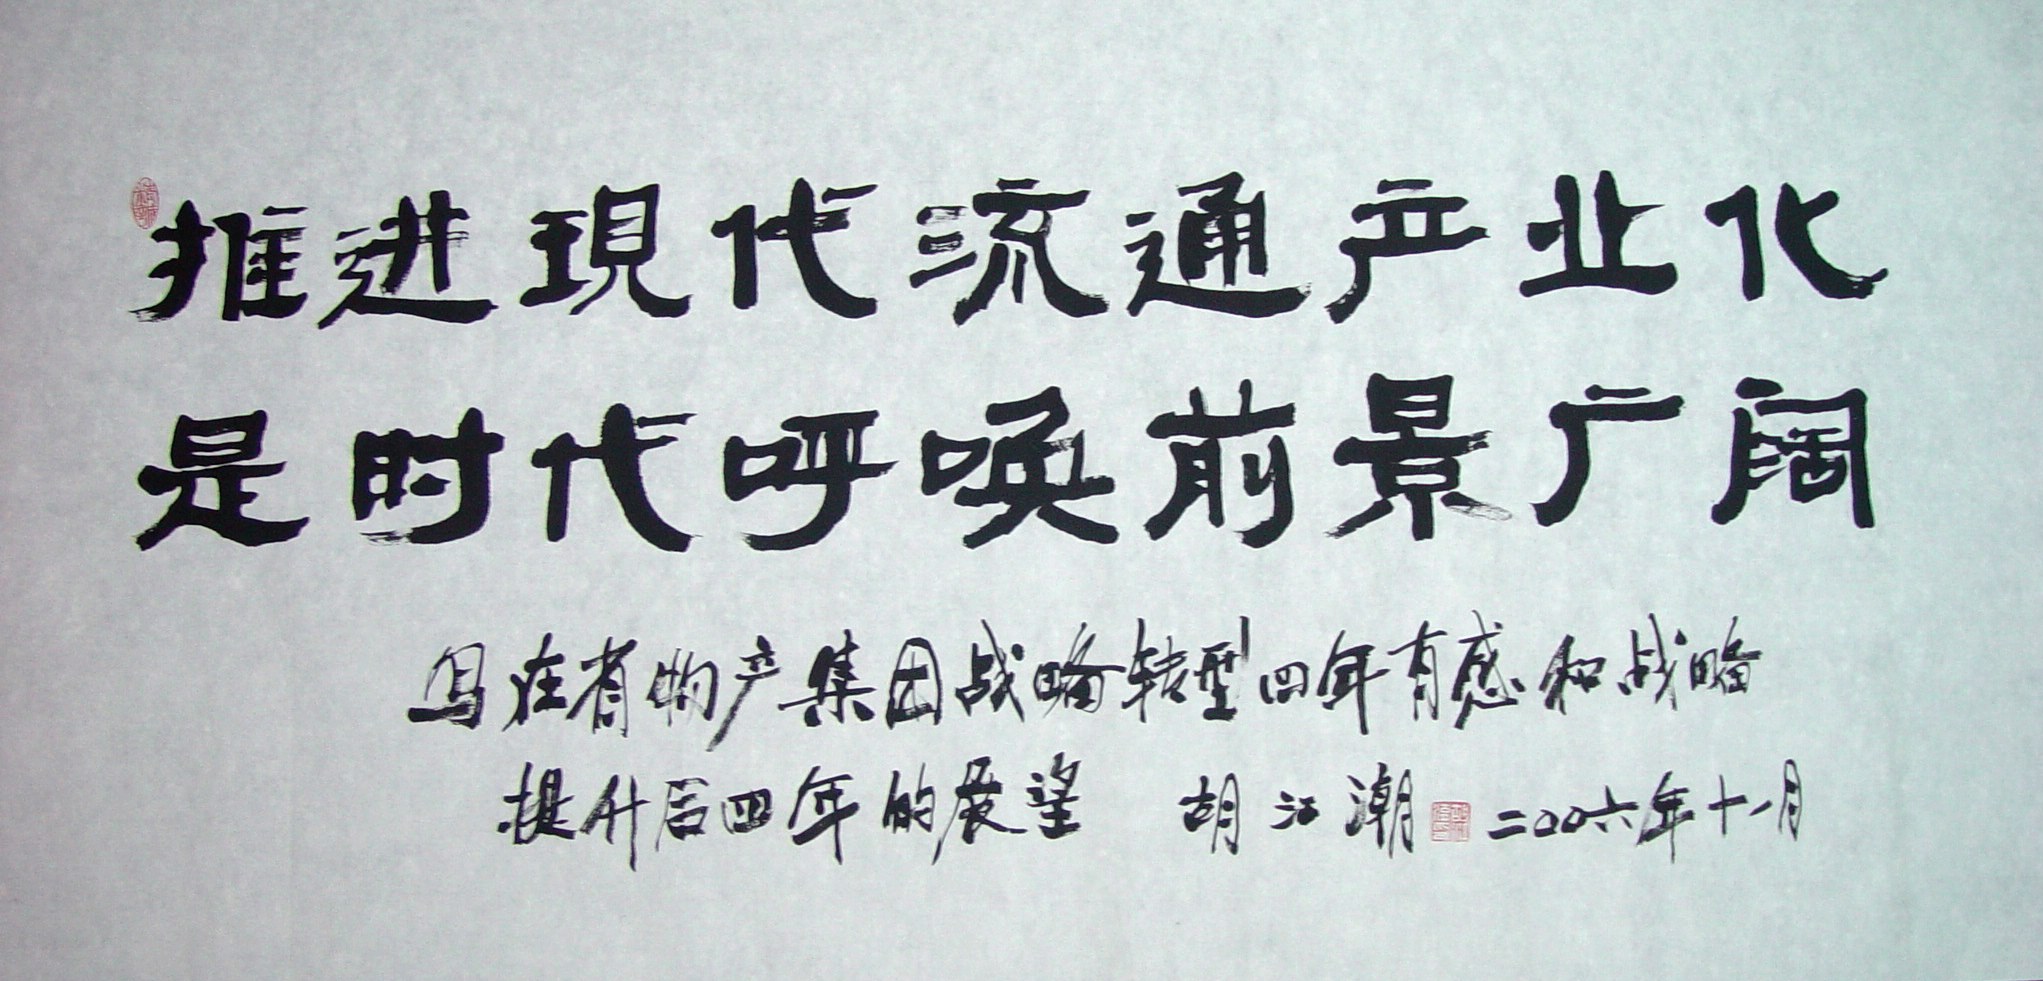 推进現代流通产业化
是时代呼唤前景广阔
写在省物产集团战略转型四年有感和战略
提升后四年的展望 胡江潮 二〇〇六年十一月